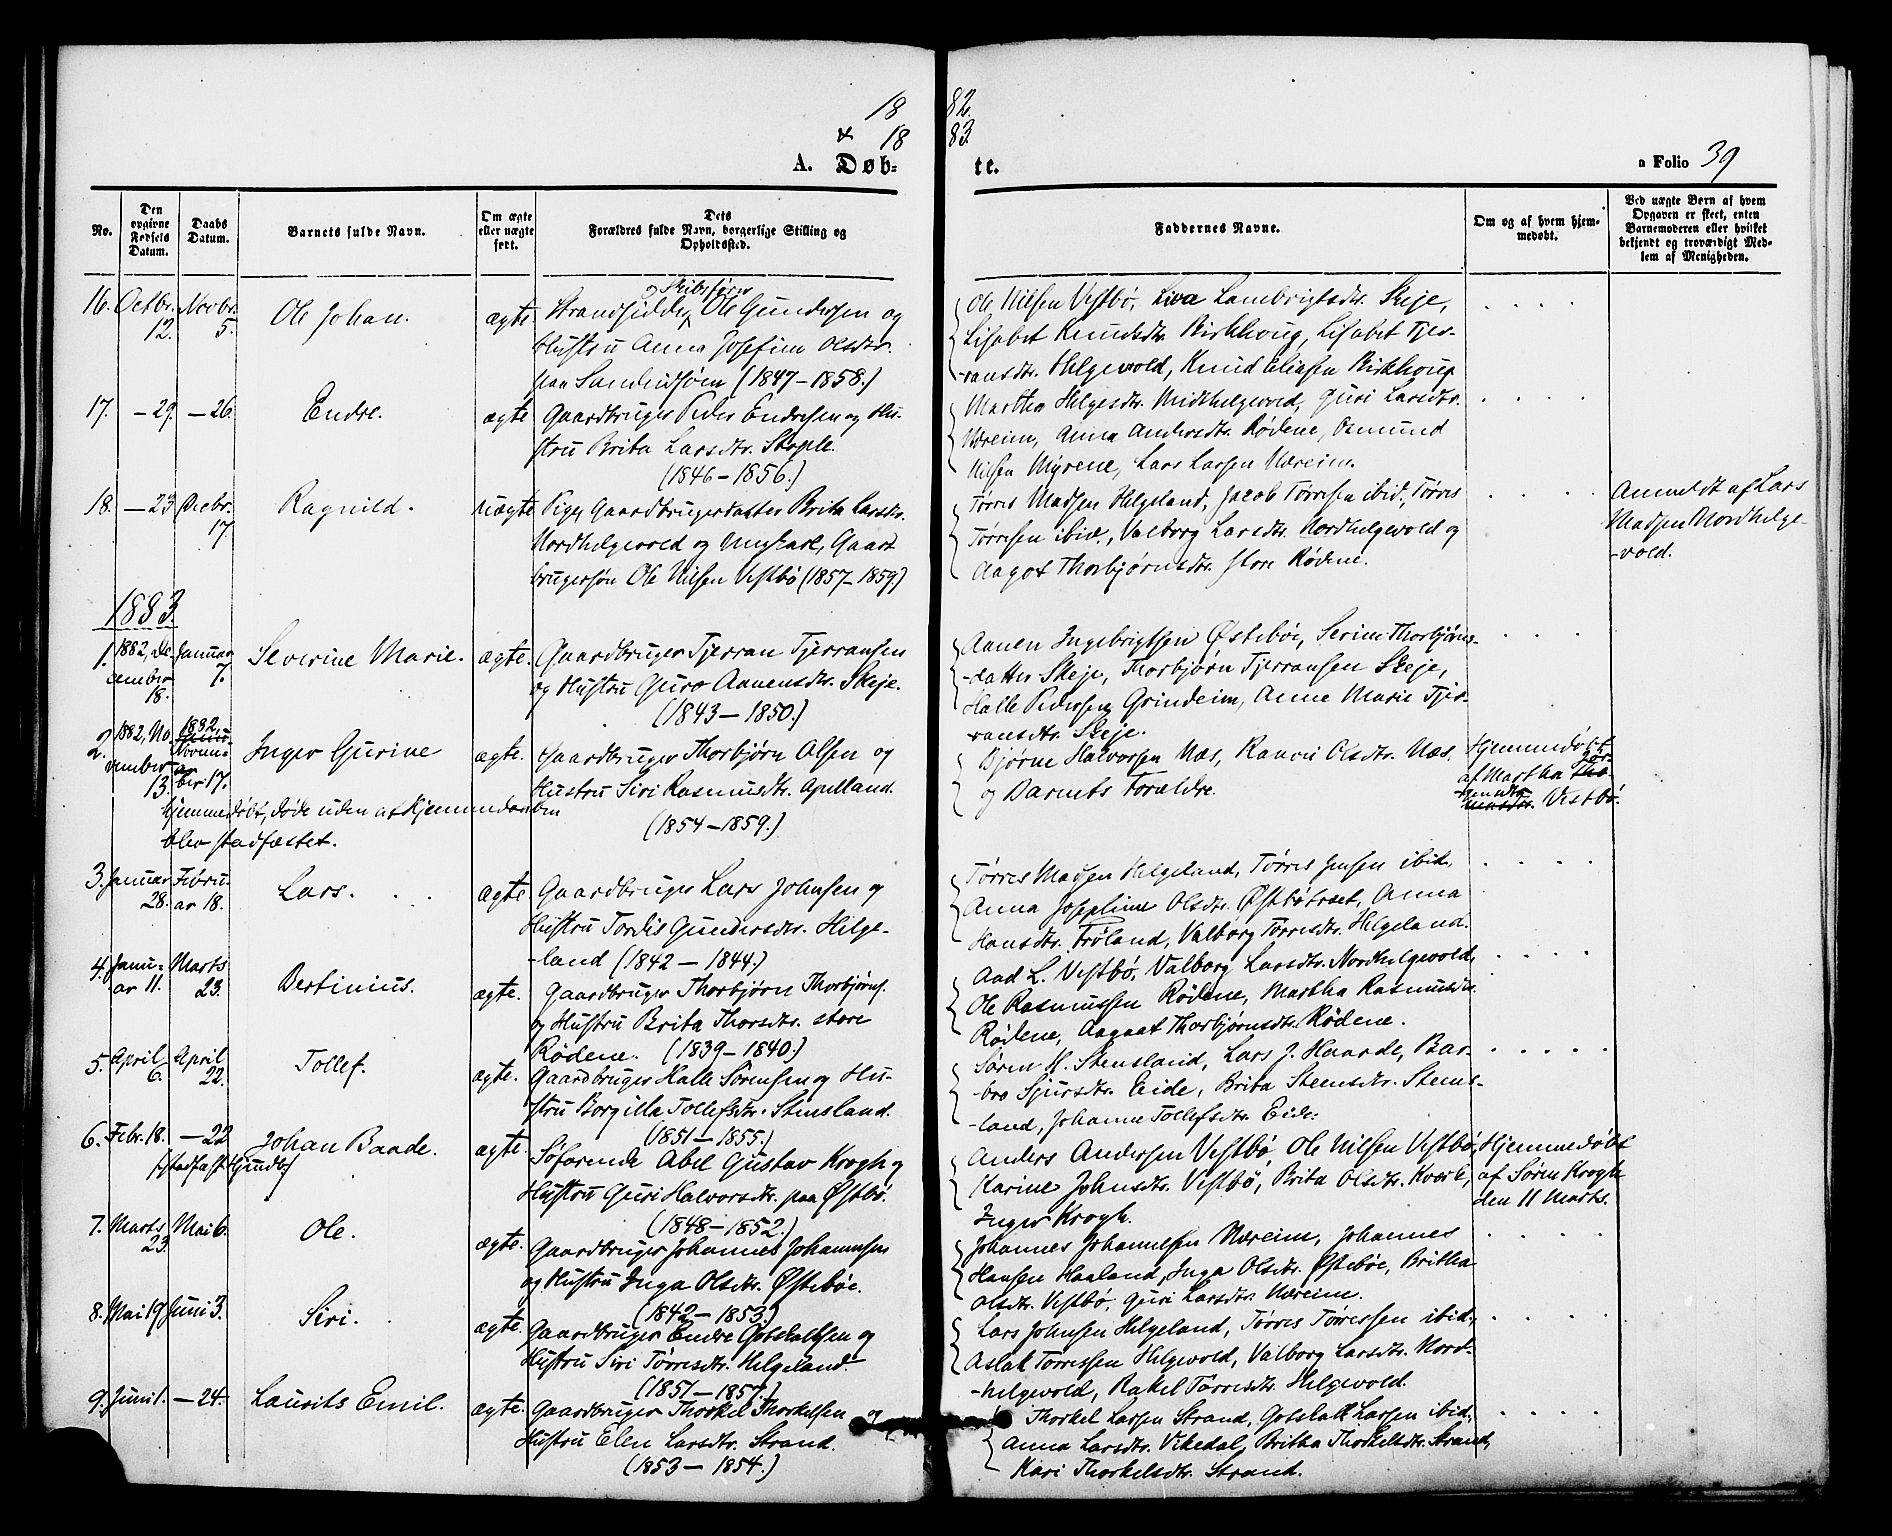 18 82.
& 18 83.
A. Døb- te.
a Folio 39
No.
Den opgivne Fødsels Datum.
Daabs Datum.
Barnets fulde Navn.
Om ægte eller uægte født.
Dets Forældres fulde Navn, borgerlige Stilling og Opholdssted.
Faddernes Navne.
Om og af hvem hjemmedøbt.
Ved uægte Børn af hvem Opgaven er skeet, enten Barnemoderen eller hvilket bekjendt og troværdigt Medlem af Menigheden.
16. Octbr. 12. Novbr. 5. Ole Johan. ægte
og Skibsfører
Strandsidder Ole Gundersen og
Hustru Anna Josefine Olsdtr.
paa (1847-1858.)
Ole Nilsen Vestbø, Liva Lambrigtsdtr. Skeje,
Lisabet Knudsdtr. Birkhoug, Lisabet Tjer-
-ransdtr. Helgevold, Knud Eliasen Birkhoug
17. -29. -26. Endre. ægte
Gaardbruger Peder Endresen og Hu-
stru Brita Larsdtr. Stople.
(1846-1856.)
Martha Helgesdtr. Midthelgevold, Guri Larsdtr.
Næreim, Anna Andersdtr. Rødene, Osmund
Nilsen Myrene, Lars Larsen Næreim.
18. -23 Decbr. 17. Ragnild. uægte
Pige, Gaardbrugerdatter Brita Larsdtr.
Nordhelgevold og Ungkarl, Gaard
brugersøn Ole Nilsen Vestbø (1857-1859)
Tørres Madsen Helgeland, Jacob Tørresen ibid., Tørres
Tørresen ibid., Valborg Larsdtr. Nordhelgevold og
Aagot Thorbjørnsdtr. store Rødene.
Anmeldt af Lars
Madsen Nordhelge-
-vold.
1883.
1. 1882, De-
cember
18. Januar
7. Severine Marie. ægte.
Gaardbruger Tjerran Tjerransen
og Hustru Guro Aanensdtr. Skeje.
(1843-1850.)
Aanen Ingebrigtsen Østebøe, Serine Thorbjørns-
-datter Skeje, Thorbjørn Tjerransen Skeje,
Halle Pedersen Grindeim, Anne Marie Tjer-
ransdtr. Skeje.
2. 1882, No-
vember
13. 1882,
Novem-
ber 17. Inger Gurine ægte.
Gaardbruger Thorbjørn Olsen og
Hustru Siri Rasmusdtr. Apelland.
(1854-1859.)
Bjørne Halvorsen Næs, Ranvei Olsdtr. Næs,
og Barnets Forældre.
Hjemmedøbt
af Martha
Vestbø.
hjemmedøbt, døde uden at Hjemmedaaben
blev stadfæstet.
3. Januar
28. Febru-
ar 18. Lars. ægte
Gaardbruger Lars Johnsen og
Hustru Tordis Gundersdtr. Helge-
-land (1842-1844.)
Tørres Madsen Helgeland, Tørres Jensen ibid,
Anna Josephine Olsdtr. Østbøtræet, Anna
Hansdtr. Frøland, Valborg Tørresdtr. Helgeland.
4. Janu-
ar 11. Marts
23. Bertinius. ægte.
Gaardbruger Thorbjørn Thorbjørns.
og Hustru Brita Thorsdtr. store
Rødene. (1839-1840.)
Aad L. Vestbø, Valborg Larsdtr. Nordhelgevold,
Ole Rasmussen Rødene, Martha Rasmusdtr.
Rødene, Aagaat Thorbjørnsdtr. Rødene.
5. April
6. April
22. Tollef. ægte.
Gaardbruger Halle Sørensen og Hu-
stru Borgilla Tollefsdtr. Stensland.
(1851-1855.)
Søren H. Stensland, Lars J. Haarde, Bar-
-bro Sjursdtr. Eide, Brita Steensdtr. Stens-
-land, Johanne Tollefsdtr. Eide.
6. Febr. 18. -22 Johan Baade. ægte.
Søfarende Abel Gustav Krogh og
Hustru Guri Halvorsdtr. paa Østbø.
(1848-1852.)
Anders Andersen Vestbø, Ole Nilsen Vestbø,
Karine Johnsdtr. Vestbø, Brita Olsdtr. Kvæle,
Inger Krogh.
Hjemmedøbt
af Søren Krogh
den 11 Marts.
7. Marts
23. Mai 6. Ole. ægte.
Gaardbruger Johannes Johannesen
og Hustru Inga Olsdtr. Østebøe.
(1842-1853.)
Johannes Johannesen Næreim, Johannes
Hansen Haaland, Inga Olsdtr. Østebøe, Britha
Olsdtr. Vestbø, Guri Larsdtr. Næreim.
8. Mai 19 Juni 3. Siri. ægte.
Gaardbruger Endre Gotskalksen og
Hustru Siri Tørresdtr. Helgeland.
(1851-1857.)
Lars Johnsen Helgeland, Tørres Tørressen ibid,
Aslak Tørressen Helgevold, Valborg Larsdtr. Nord-
-helgevold, Rakel Tørresdtr. Helgevold.
9. Juni 1. -24. Laurits Emil. ægte.
Gaardbruger Thorkel Thorkelsen og
Hustru Elen Larsdtr. Strand.
(1853-1854.)
Thorkel Larsen Strand, Gotskalk Larsen ibid,
Anna Larsdtr. Vikedal, Britha Thorkelsdtr. Strand,
Kari Thorkelsdtr. Strand.